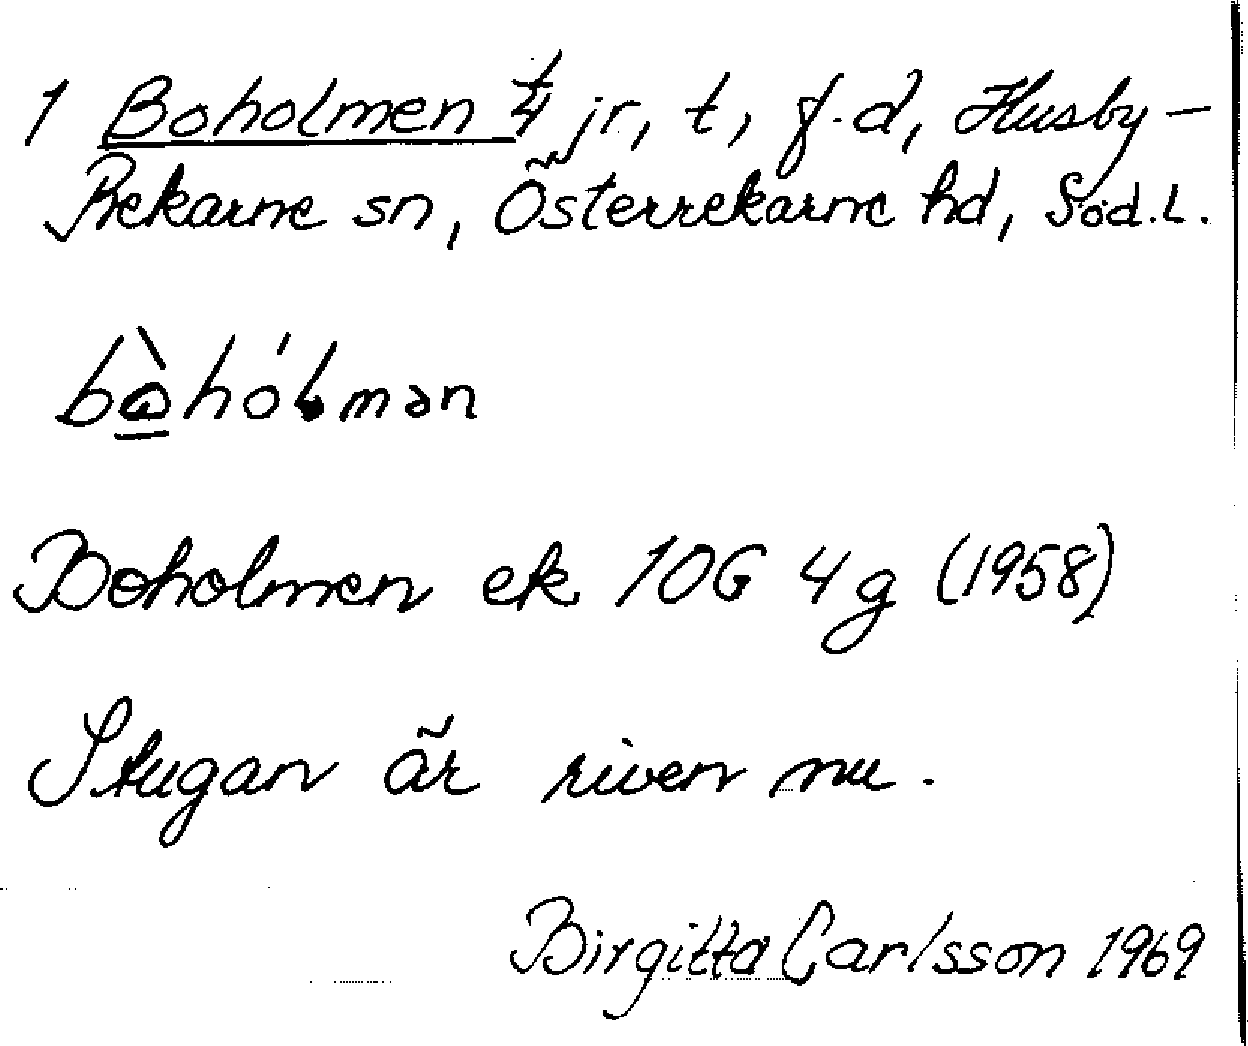 1 Boholmen 1/4 jr, t, f.d, Husby-
Rekarne sn, Österrekarne hd, Söd.L.
bò̱hólmən
Boholmen ek 10G 4g (1958)
Stugan är riven nu.
Birgitta Carlsson 1969